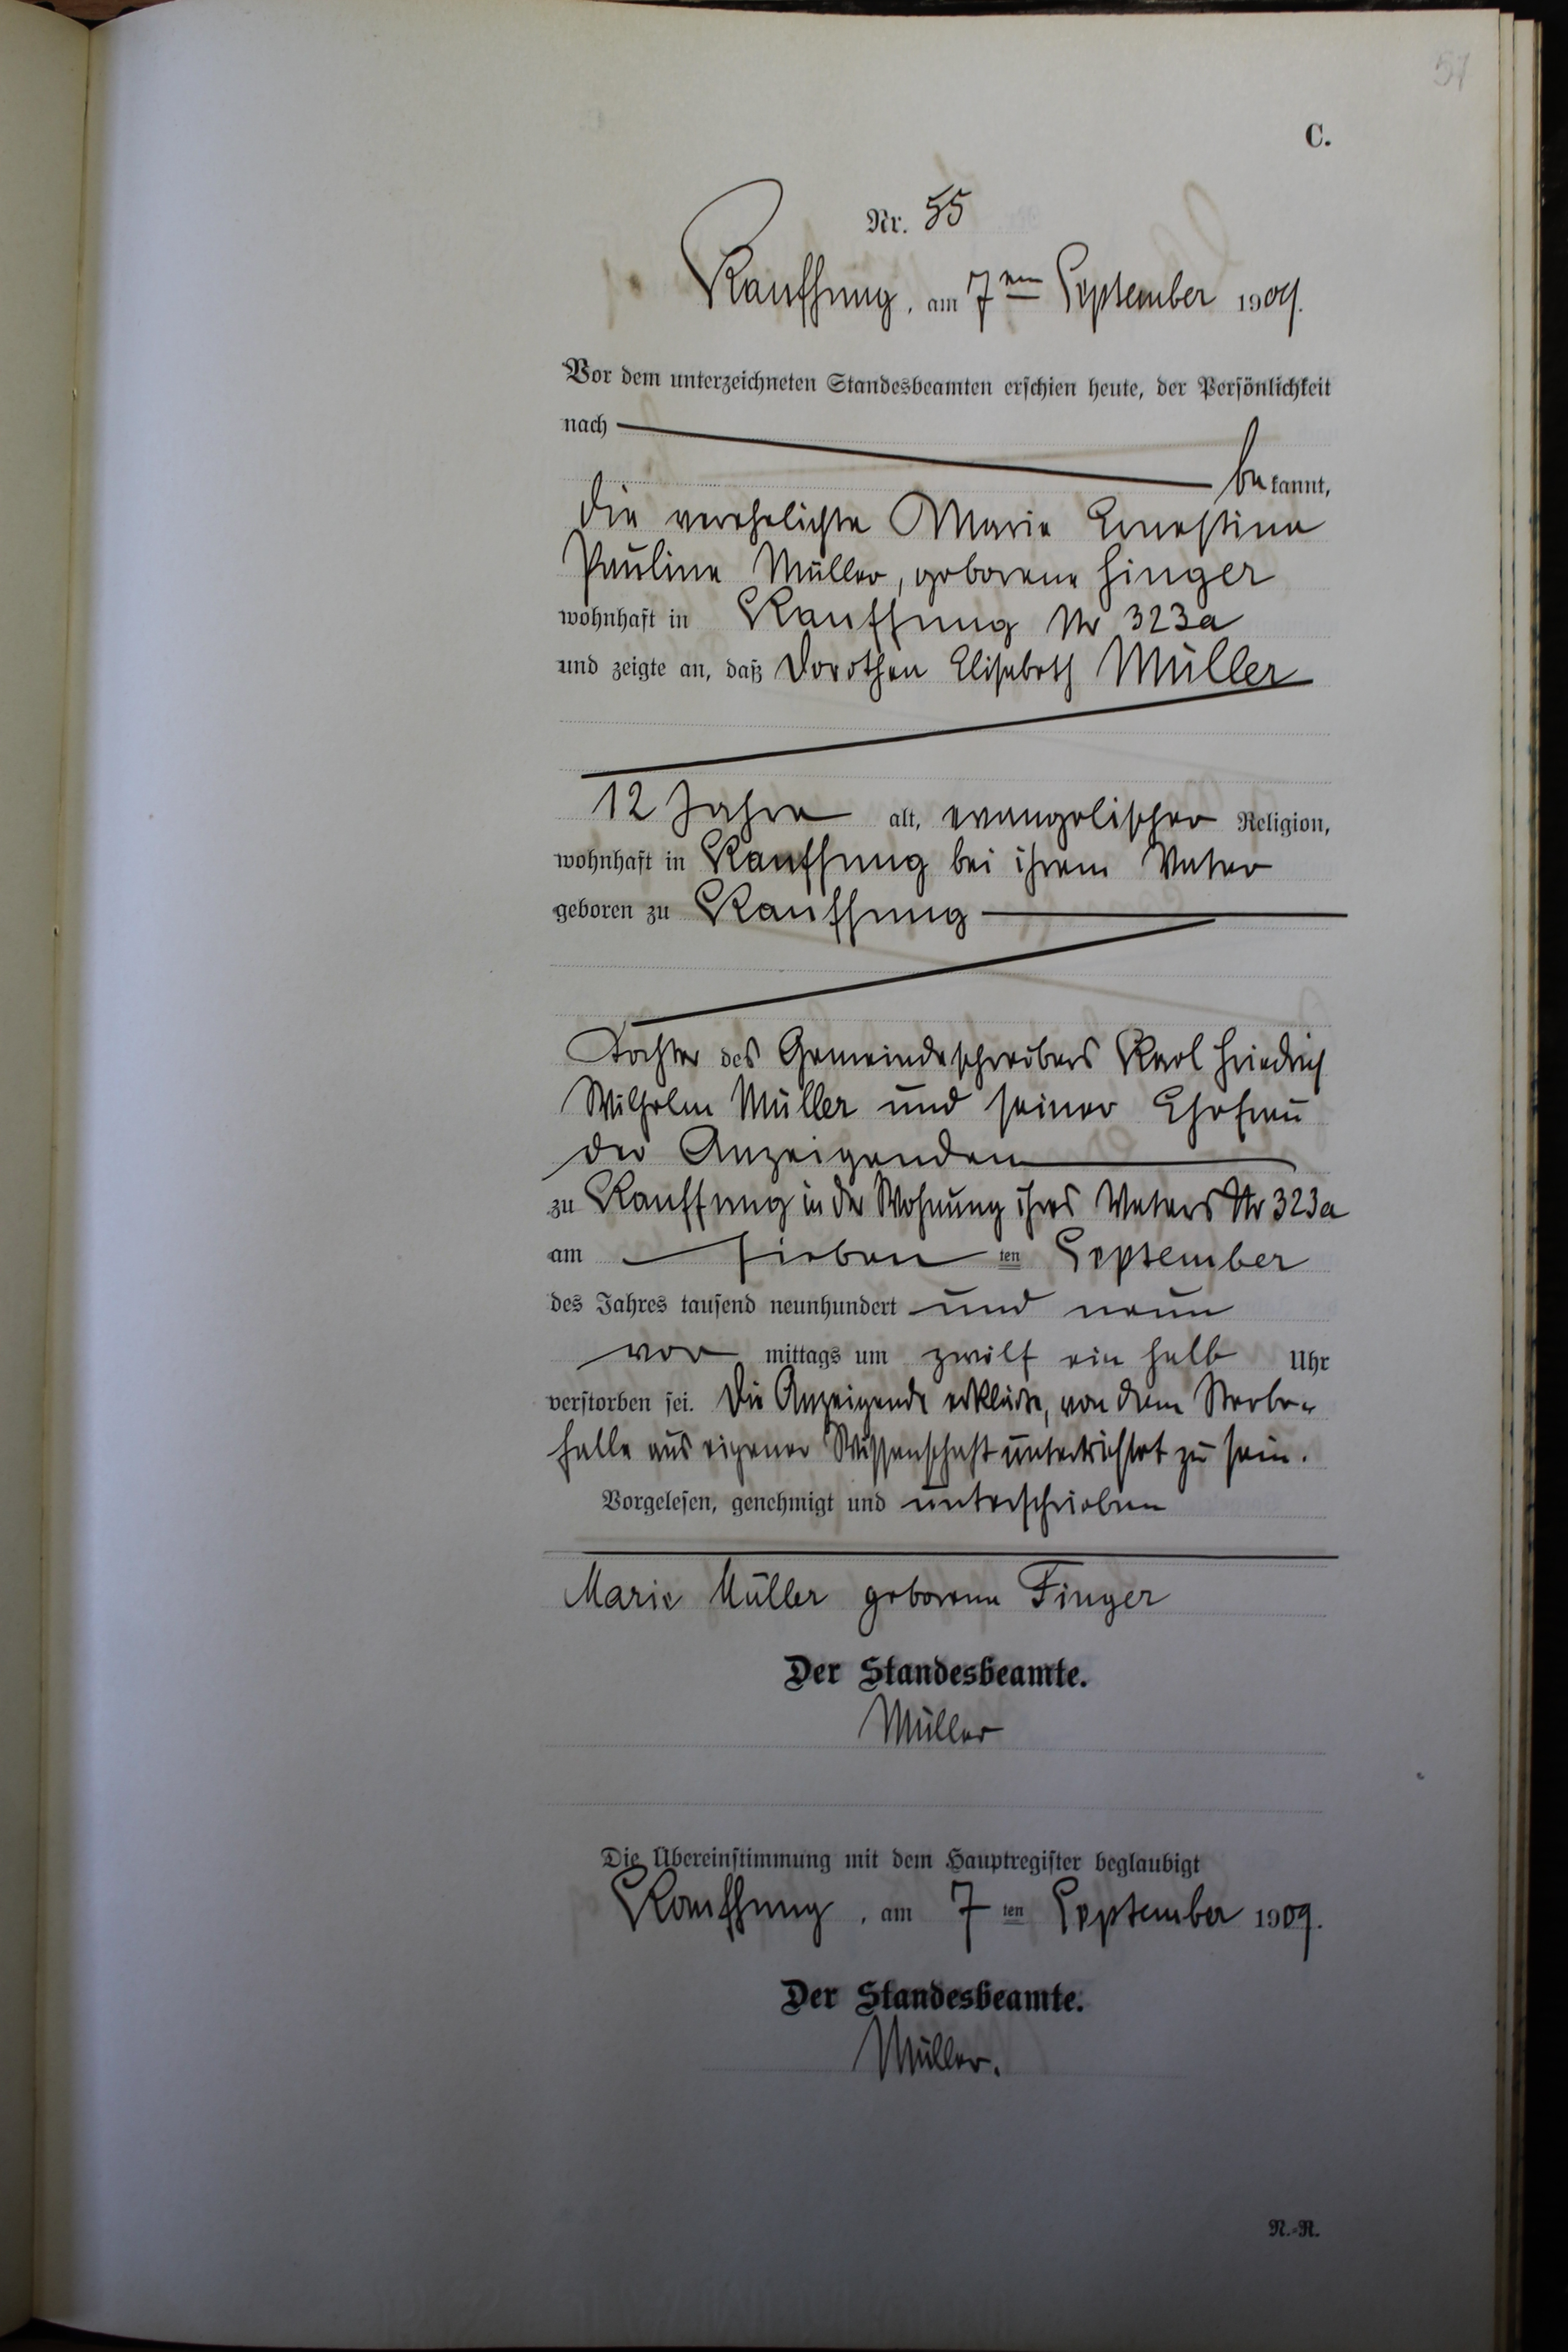 57
C.
Nr. 55
Kauffung, am 7ten September 1909.
Vor dem unterzeichneten Standesbeamten erschien heute, der Persönlichkeit
nach
bekannt,
die verehelichte Marie Ernestine
Pauline Müller, geborene Finger
wohnhaft in Kauffung Nr 323a
und zeigte an, daß Dorothea Elisabeth Müller
12 Jahre alt, evangelischer Religion,
wohnhaft in Kauffung bei ihrem Vater
geboren zu Kauffung
Tochter des Gemeindeschreibers Karl Friedrich
Wilhelm Müller und seiner Ehefrau
der Anzeigenden
zu Kauffung in der Wohnung ihres Vaters Nr 323a
am sieben ten September
des Jahres tausend neunhundert und neun
vor mittags um zwölf ein halb Uhr
verstorben sei. Die Anzeigende erklärte, von dem Sterbe-
falle aus eigener Wissenschaft unterrichtet zu sein.
Vorgelesen, genehmigt und unterschrieben
Marie Müller geborene Finger
Der Standesbeamte.
Müller
Die Übereinstimmung mit dem Hauptregister beglaubigt
Kauffung, am 7 ten September 1909.
Der Standesbeamte.
Müller.
N.-R.